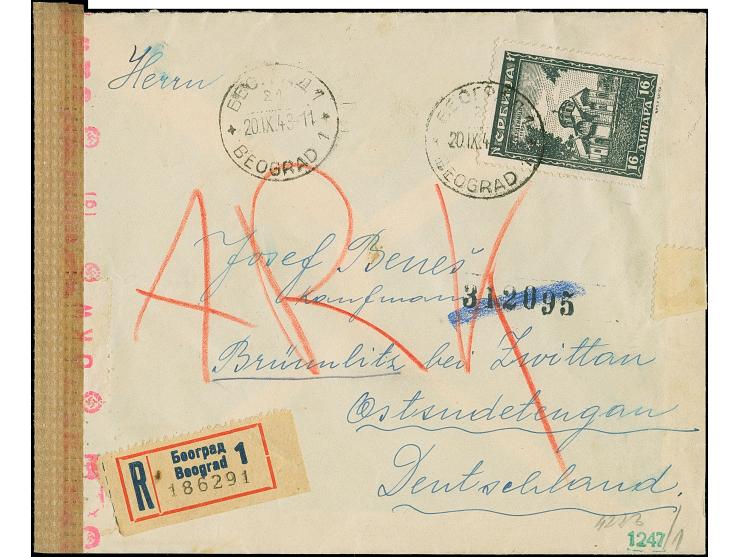 Herrn
БЕОГРАД 1
20.IX.43-11
BEOGRAD 1
БЕОГРАД
20.IX.4
BEOGRAD
СРБИЈА
16 ДИНАРА 16
A.R.K
Josef Beneš
Kaufmann
312095
Brünnlitz bei Zwittau
Ostsudetengau
Deutschland.
R
Београд
Beograd 1
186291
O K W
(g)
1247